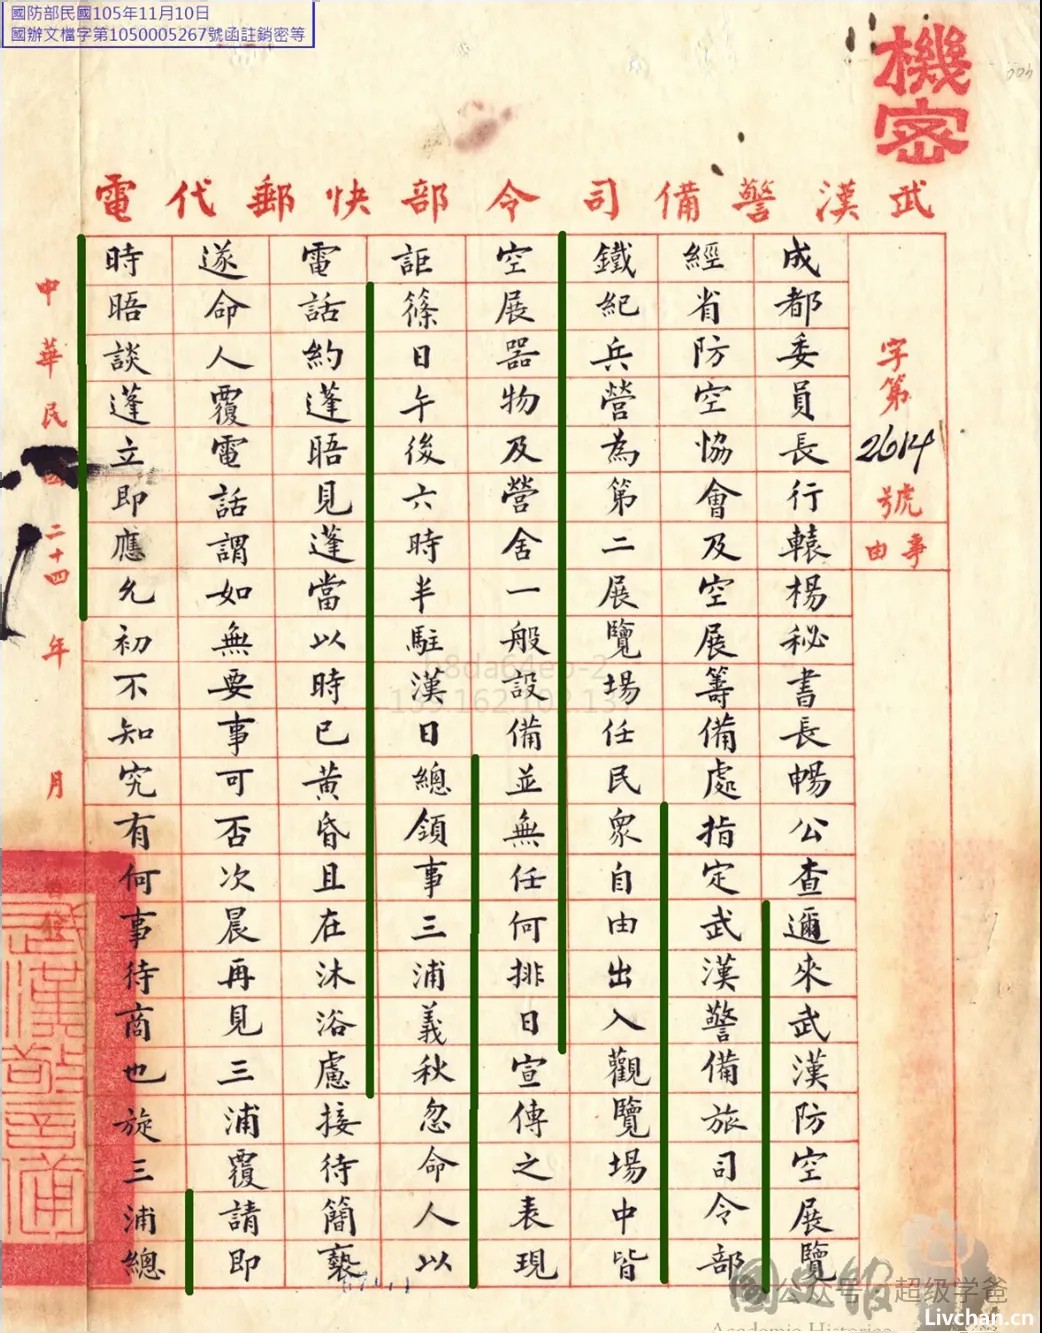 國防部民國105年11月10日
國辦文檔字第1050005267號函註銷密等
機密
武漢警備司令部快郵代電
字第2614號
事由
成都委員長行轅楊秘書長暢公查邇來武漢防空展覽
經省防空協會及空展籌備處指定武漢警備旅司令部
鐵紀兵營為第二展覽場任民眾自由出入觀覽場中皆
空展器物及營舍一般設備並無任何排日宣傳之表現
詎篠日午後六時半駐漢日總領事三浦義秋忽命人以
電話約蓬晤見蓬當以時已黃昏且在沐浴慮接待簡褻
遂命人覆電話謂如無要事可否次晨再見三浦覆請即
時晤談蓬立即應允初不知究有何事待商也旋三浦總
中華民國二十四年 月
公众号·超级学爸
Livchan.cn